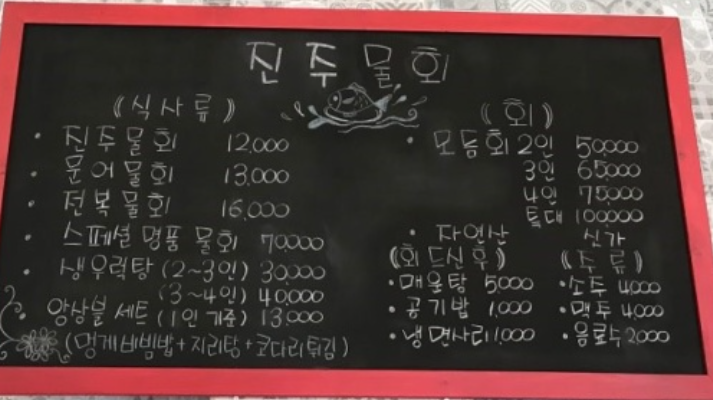 진주물회
《식사류》
· 진주물회 12,000
· 문어물회 13,000
· 전복물회 16,000
· 스페셜명품물회 70,000
· 생우럭탕 (2~3인) 30,000
(3~4인) 40,000
· 앙상블세트 (1인기준) 13,000
(멍게비빔밥+지리탕+코다리튀김)
《회》
· 모듬회 2인 50,000
3인 65,000
4인 75,000
특대 100,000
· 자연산 싯가
《회드신후》
· 매운탕 5,000
· 공기밥 1,000
· 냉면사리 1,000
《주류》
· 소주 4,000
· 맥주 4,000
· 음료수 2,000